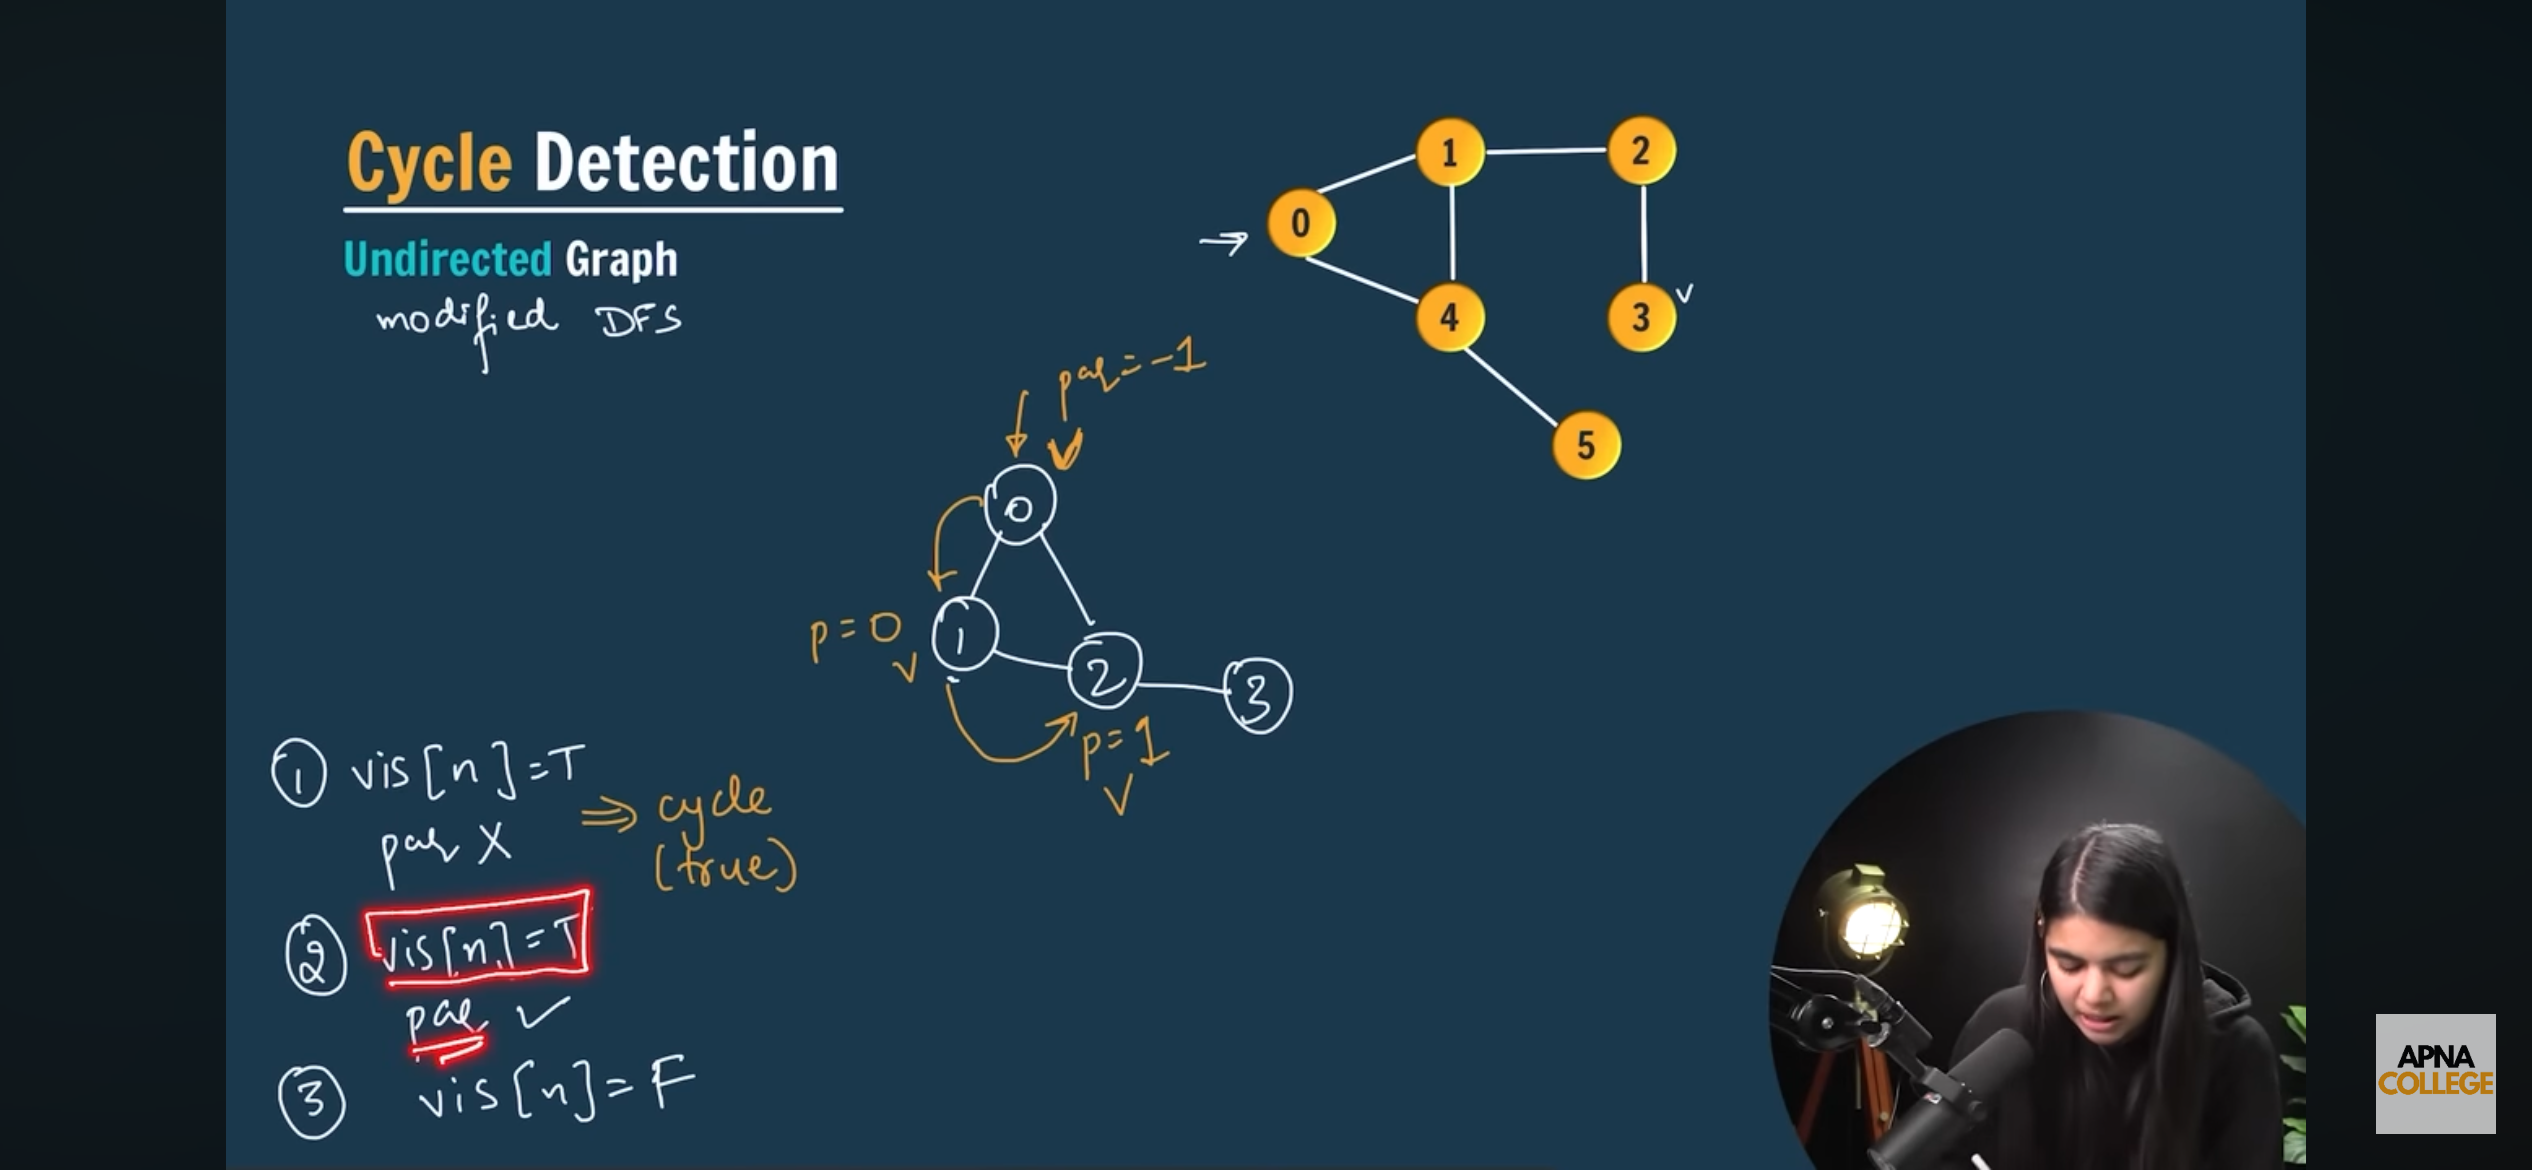 Cycle Detection
Undirected Graph
modified DFS
1
2
0
4
3
v
5
par = -1
0
p = 0
v
1
2
3
p = 1
v
① vis[n] = T
par X
⇒ cycle
(true)
② vis[n] = T
par ✓
③ vis[n] = F
APNA
COLLEGE